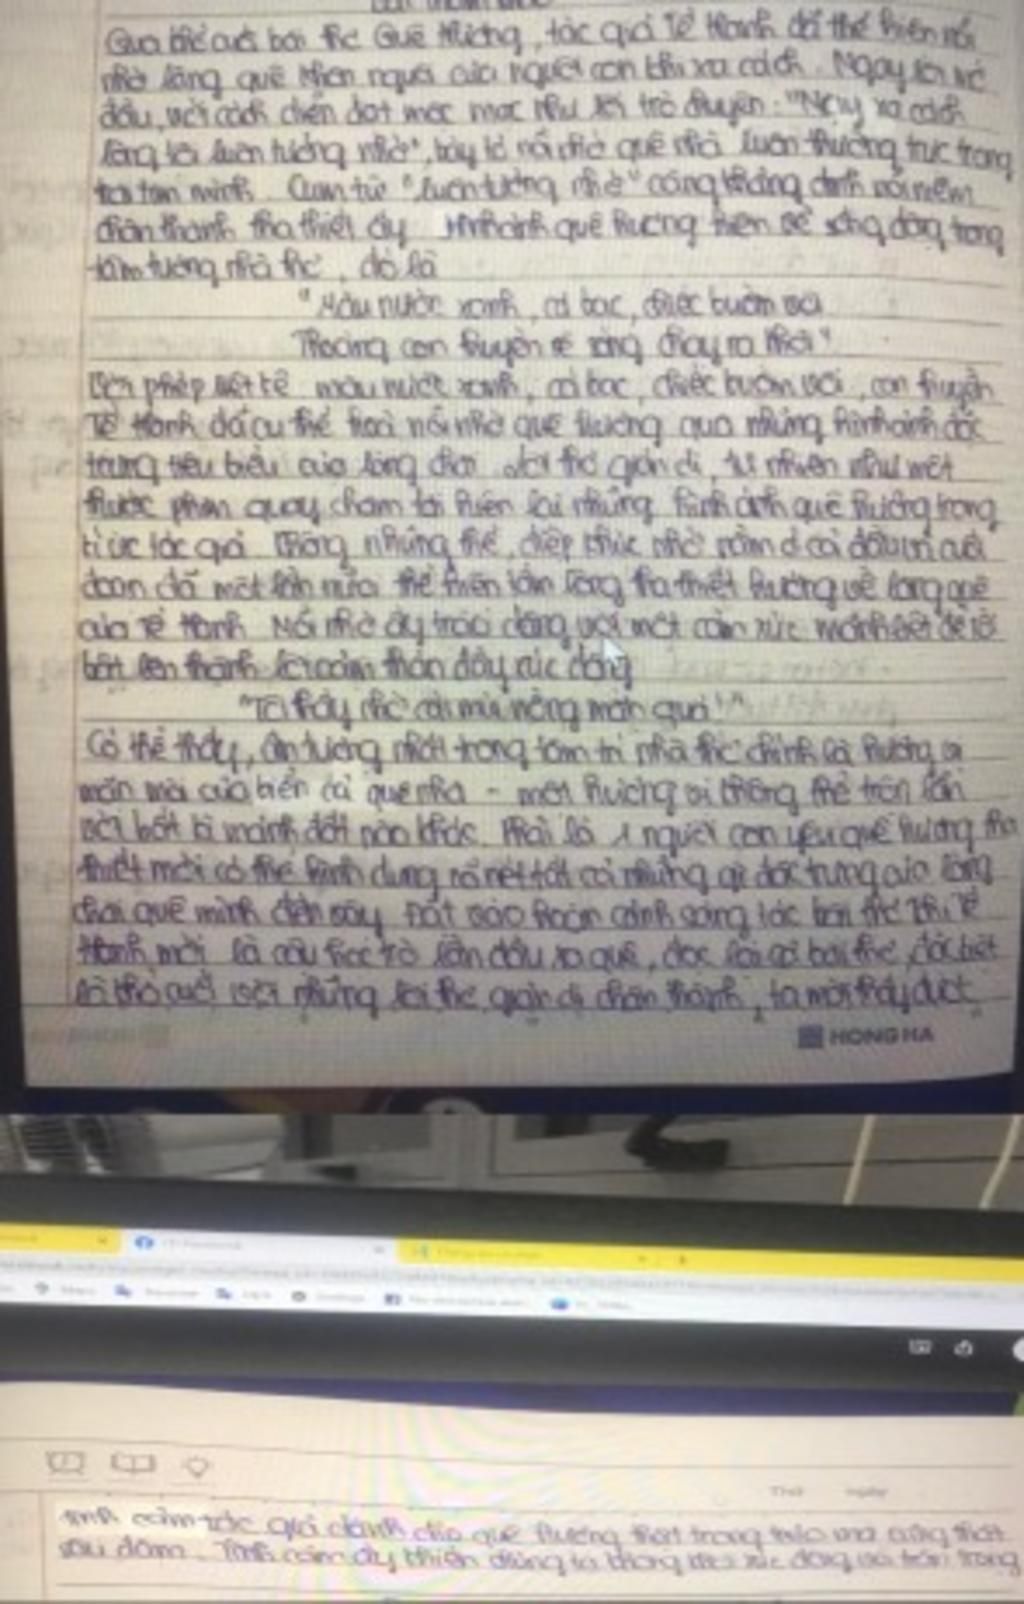 Qua khổ cuối bài thơ Quê Hương, tác giả Tế Hanh đã thể hiện nỗi
nhớ làng quê của người con khi xa cách. Ngay từ
đầu, với cách diễn đạt mộc mạc như lời trò chuyện: "Nay xa cách
lòng tôi luôn tưởng nhớ", bày tỏ nỗi nhớ quê nhà luôn thường trực trong
Cụm từ "luôn tưởng nhớ" càng khẳng định nỗi niềm
chân thành tha thiết ấy. Hình ảnh quê hương hiện về sống động trong
tâm tưởng nhà thơ, đó là
"Màu nước xanh, cá bạc, chiếc buồm vôi
Thoáng con thuyền rẽ sóng chạy ra khơi"
phép liệt kê màu nước xanh, cá bạc, chiếc buồm vôi, con thuyền
Tế Hanh đã cụ thể hoá nỗi nhớ quê hương qua những hình ảnh đặc
trưng tiêu biểu của làng chài. Lời thơ giản dị, tự nhiên như một
thước phim quay chậm tái hiện lại những hình ảnh quê hương trong
kí ức tác giả. Không những thế, điệp khúc nhớ nằm ở cả đầu và cuối
đoạn đã một lần nữa thể hiện tấm lòng tha thiết hướng về làng quê
của Tế Hanh. Nỗi nhớ ấy trào dâng với một cảm xúc mãnh liệt để rồi
bật lên thành lời cảm thán đầy xúc động
"Tôi thấy nhớ cái mùi nồng mặn quá!"
Có thể thấy, ấn tượng nhất trong tâm trí nhà thơ chính là hương vị
mặn mòi của biển cả quê nhà - một hương vị không thể trộn lẫn
với bất kì mảnh đất nào khác. Phải là 1 người con yêu quê hương tha
thiết mới có thể hình dung rõ nét tất cả những gì đặc trưng của làng
chài quê mình đến vậy. Đặt vào hoàn cảnh sáng tác bài thơ khi Tế
Hanh mới là cậu học trò lần đầu xa quê, đọc lại cả bài thơ, đặc biệt
là khổ cuối với những lời thơ giản dị chân thành, ta mới thấy được
HONG HA
Thứ ngày
tình cảm tác giả dành cho quê hương thật trong trẻo mà cũng thật
sâu đậm. Tình cảm ấy khiến chúng ta không khỏi xúc động và trân trọng